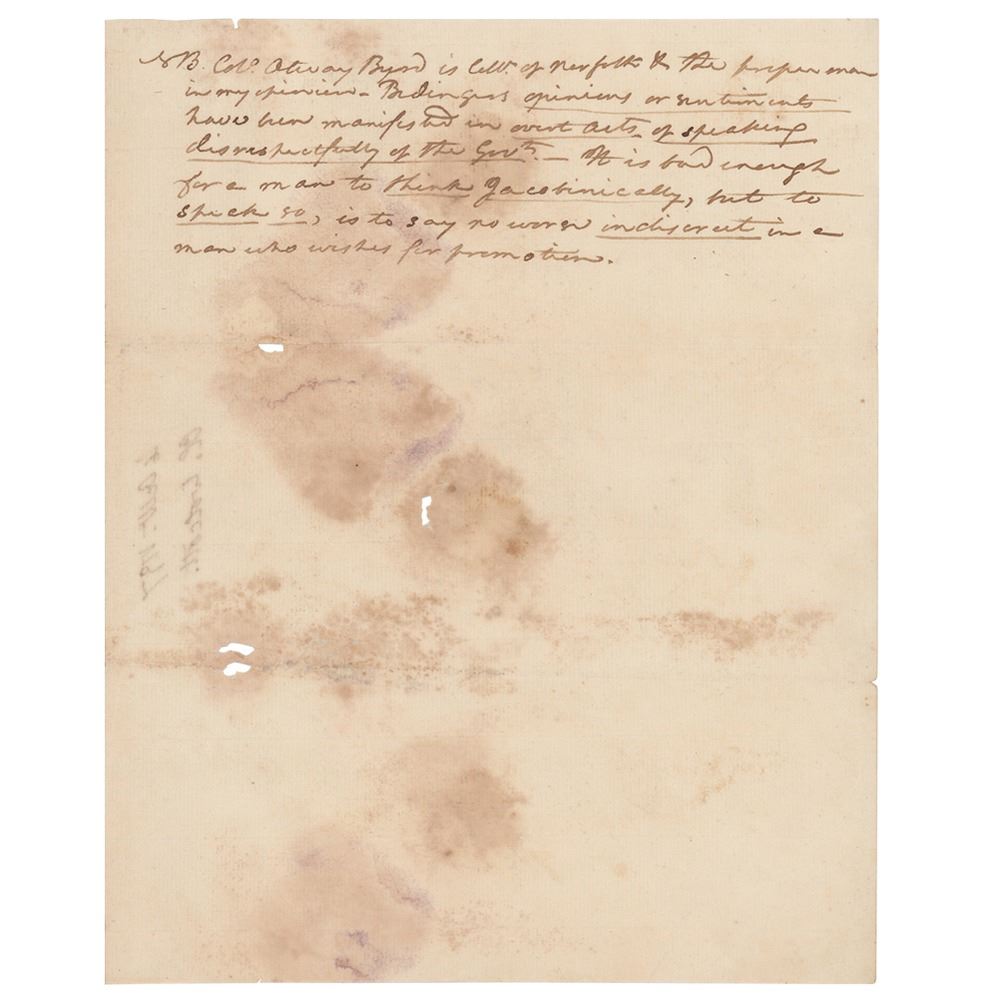 NB. Colo. Otway Byrd is Collr. of Norfolk & the proper man
in my opinion - Bedingers opinions or sentiments
have been manifested in overt acts, of speaking
disrespectfully of the Govt. - It is bad enough
for a man to think Jacobinically, but to
speak so, is to say no worse indiscreet in a
man who wishes for promotion.